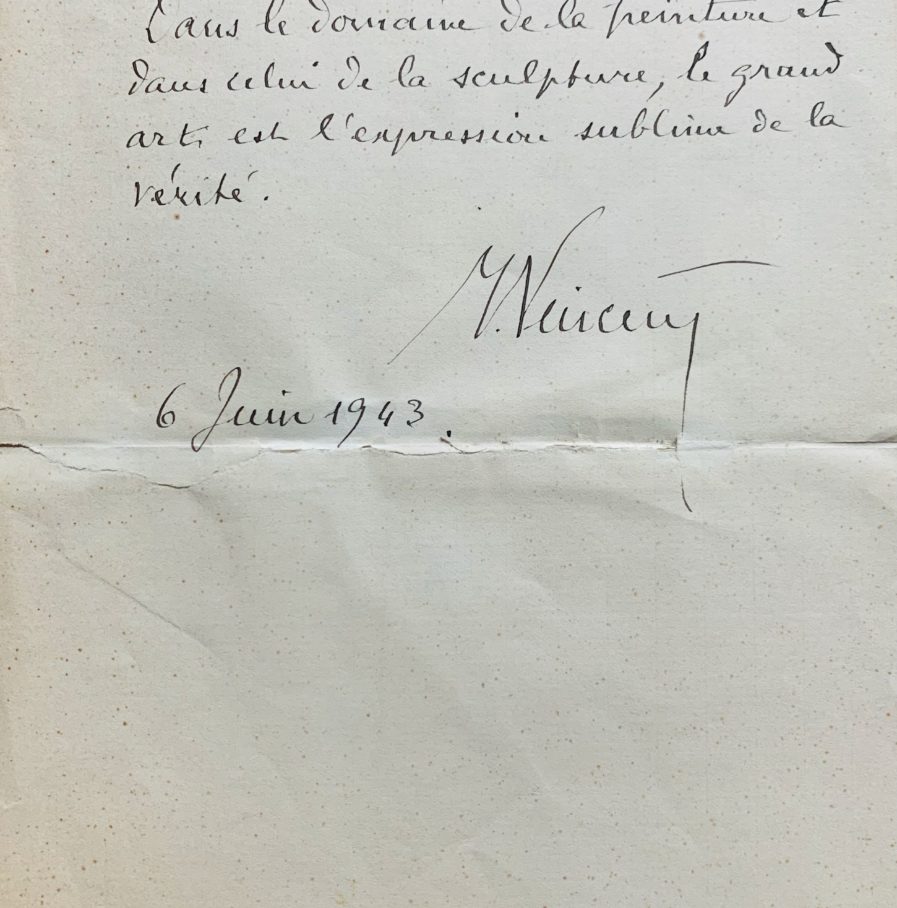 Dans le domaine de la peinture et
dans celui de la sculpture, le grand
art, est l'expression sublime de la
vérité.
Vincent
6 Juin 1943.